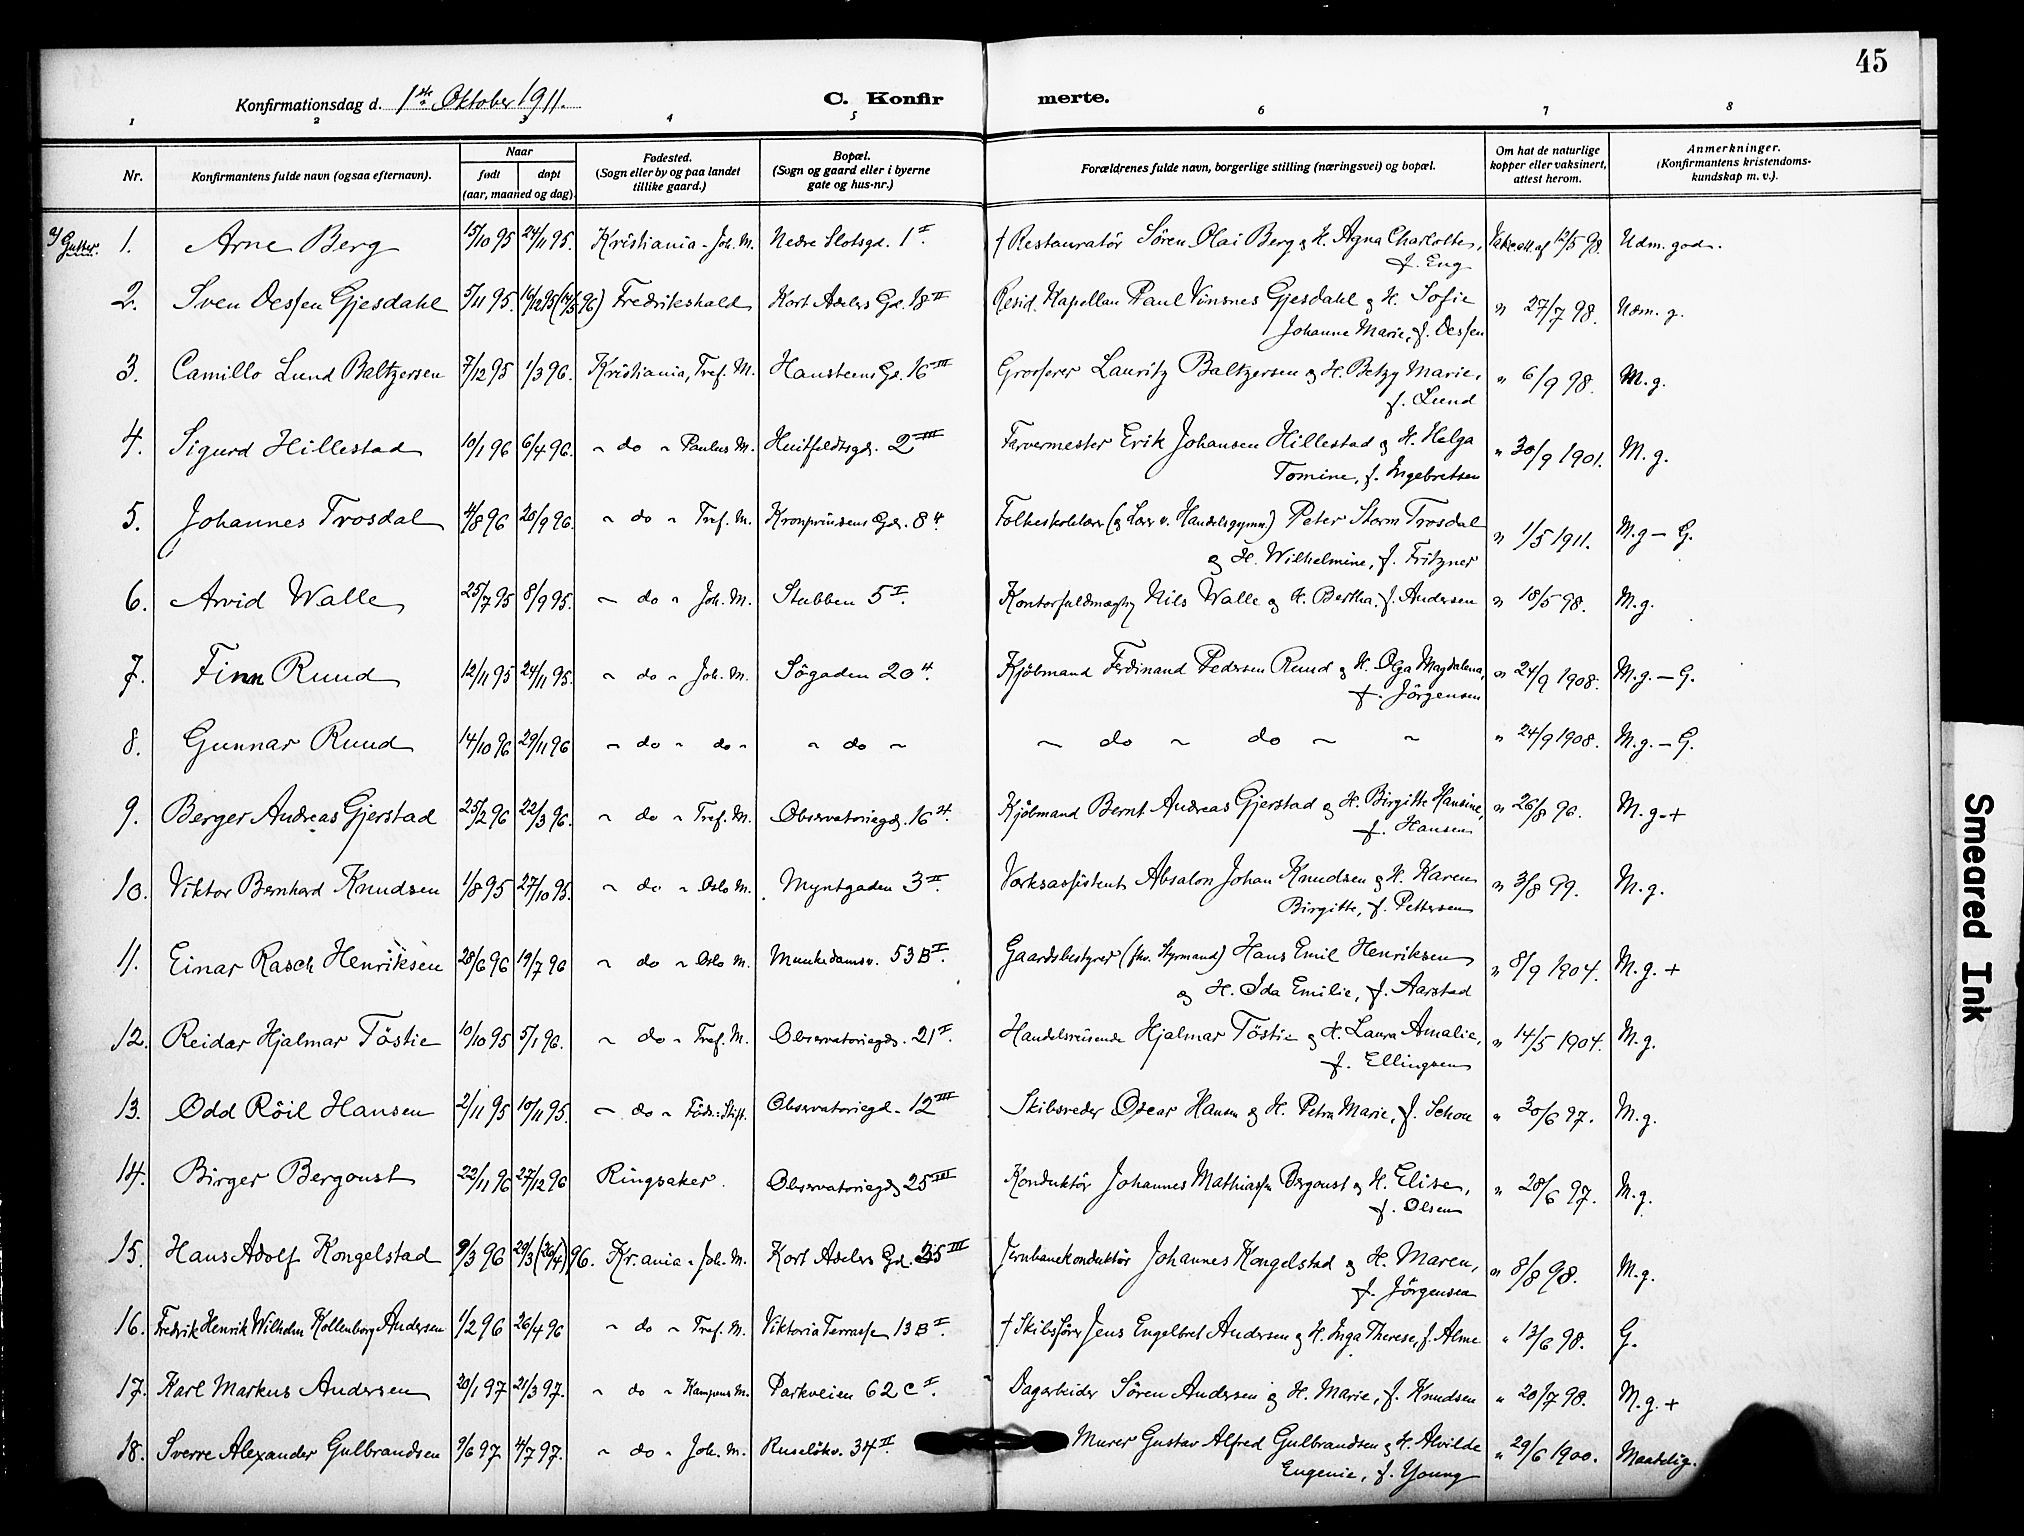 45
Konfirmationsdag d. 1ste Oktober 1911. C. Konfirmerte.
1 2 3 4 5 6 7 8
Nr. Konfirmantens fulde navn (ogsaa efternavn). Naar født døpt (aar, maaned og dag). Fødested. (Sogn eller by og paa landet tillike gaard.) Bopæl. (Sogn og gaard eller i byerne gate og hus-nr.) Forældrenes fulde navn, borgerlige stilling (næringsvei) og bopæl. Om hat de naturlige kopper eller vaksinert, attest herom. Anmerkninger. (Konfirmantens kristendoms-kundskap m. v.).
a/ Gutter.
1. Arne Berg 15/10 95 24/11 95. Kristiania - Joh. M. Nedre Slotsgd. 1 I. † Restauratör Sören Olai Berg og H. Agna Charlotte, f. Eng Vakc.att. af 12/5 98. Udm. god.
2. Sven Dessen Gjesdahl 5/11 95. 16/12 95 (14/5 96) Fredrikshald Kort Adelers Gd. 18 II Resid. Kapellan Paul Vinsnes Gjesdahl og H. Sofie Johanne Marie, f. Dessen " 27/7 98. Udm. g.
3. Camillo Lund Baltzersen 7/12 95 1/3 96. Kristiania, Tref. M. Hansteens Gd. 16 III Grosserer Lauritz Baltzersen og H. Betzy Marie, f. Lund " 6/9 98. M. g.
4. Sigurd Hillestad 10/1 96 6/4 96. " do " Paulus M. Huitfeldtsgd. 2 III Farvermester Erik Johansen Hillestad og H. Helga Tomine, f. Ingebretsen " 30/9 1901. M. g.
5. Johannes Trosdal 4/8 96 20/9 96. " do " Tref. M. Kronprindsens Gd. 8 4. Folkeskolelærer (og Lærer v. Handelsgymn.) Peter Storm Trosdal og H. Wilhelmine, f. Fritzner " 1/5 1911. M. g - G.
6. Arvid Walle 25/7 95 8/9 95. " do " Joh. M. Stubben 5 I. Kontorfuldmægtig Nils Walle og H. Bertha, f. Andersen " 18/5 98. M. g.
7. Finn Ruud 12/11 95 24/11 95. " do " Joh. M. Sögaden 20 4. Kjöbmand Ferdinand Pedersen Ruud og H. Olga Magdalena, f. Jörgensen " 24/9 1908. M. g. - G.
8. Gunnar Ruud 14/10 96 29/11 96 " do " do " " do " " do " do " " " 24/9 1908. M. g. - G.
9. Berger Andreas Gjerstad 25/2 96 22/3 96. " do " Tref. M. Observatoriegd. 16 4. Kjöbmand Bernt Andreas Gjerstad og H. Birgitte Hansine, f. Hansen " 26/8 96. M. g. +
10. Viktor Bernhard Knudsen 1/8 95 27/10 95. " do " Oslo M. Myntgaden 3 II. Værksassistent Absalon Johan Knudsen og H. Karen Birgitte, f. Pettersen " 3/8 99. M. g.
11. Einar Rasch Henriksen 28/6 96 19/7 96 " do " Oslo M. Munkedamsv. 53 B I. Gaardsbestyrer (fhv. Styrmand) Hans Emil Henriksen og H. Ida Emilie, f. Aarstad " 8/9 1904. M. g. +
12. Reidar Hjalmar Töstie 10/10 95 5/1 96. " do " Tref. M. Observatoriegd. 21 I. Handelsreisende Hjalmar Töstie og H. Laura Amalie, f. Ellingsen " 14/5 1904. M. g.
13. Odd Röil Hansen 2/11 95 10/11 95. " do " Föds.Stift. Observatoriegd. 12 III Skibsreder Oscar Hansen og H. Petra Marie, f. Schou " 30/6 97. M. g.
14. Birger Bergoust 22/11 96 27/12 96 Ringsaker. Observatoriegd. 25 III Konduktör Johannes Mathiassen Bergoust og H. Elise, f. Olsen " 28/6 97. M. g.
15. Hans Adolf Kongelstad 9/3 96 29/3 (26/4) 96. Kr.ania - Joh. M. Kort Adelers Gd. 35 III Jernbanekonduktör Johannes Kongelstad og H. Maren, f. Jörgensen " 8/8 98. M. g.
16. Fredrik Henrik Wilhelm Kollenborg Andersen 1/2 96 26/4 96 " do " Tref. M. Viktoria Terrasse 13 B I. † Skibsförer Jens Engelbret Andersen og H. Inga Therese, f. Alme " 13/6 98. G.
17. Karl Markus Andersen 20/1 97 21/3 97. " do " Kampens M. Parkveien 62 c I. Dagarbeider Sören Andersen og H. Marie, f. Knudsen " 20/7 98. M. g. +
18. Sverre Alexander Gulbrandsen 9/6 97 4/7 97. " do " Joh. M. Ruselökv. 34 II. Murer Gustav Alfred Gulbrandsen og H. Alvilde Eugenie, f. Young " 29/6 1900. Maadelig.
Smeared Ink